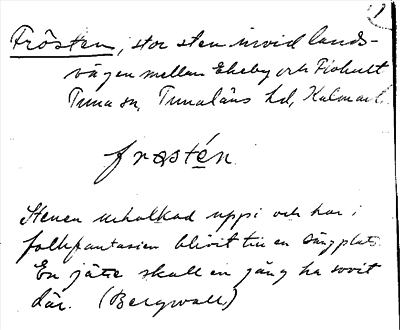 Frösten, stor sten invid lands-
vägen mellan Ekeby och Fiohult
Tuna sn, Tunaläns hd, Kalmar l.
frǫstén.
Stenen urholkad uppi och har i
folkfantasien blivit till en sängplats.
En jätte skall en gång ha sovit
där. (Bergwall)